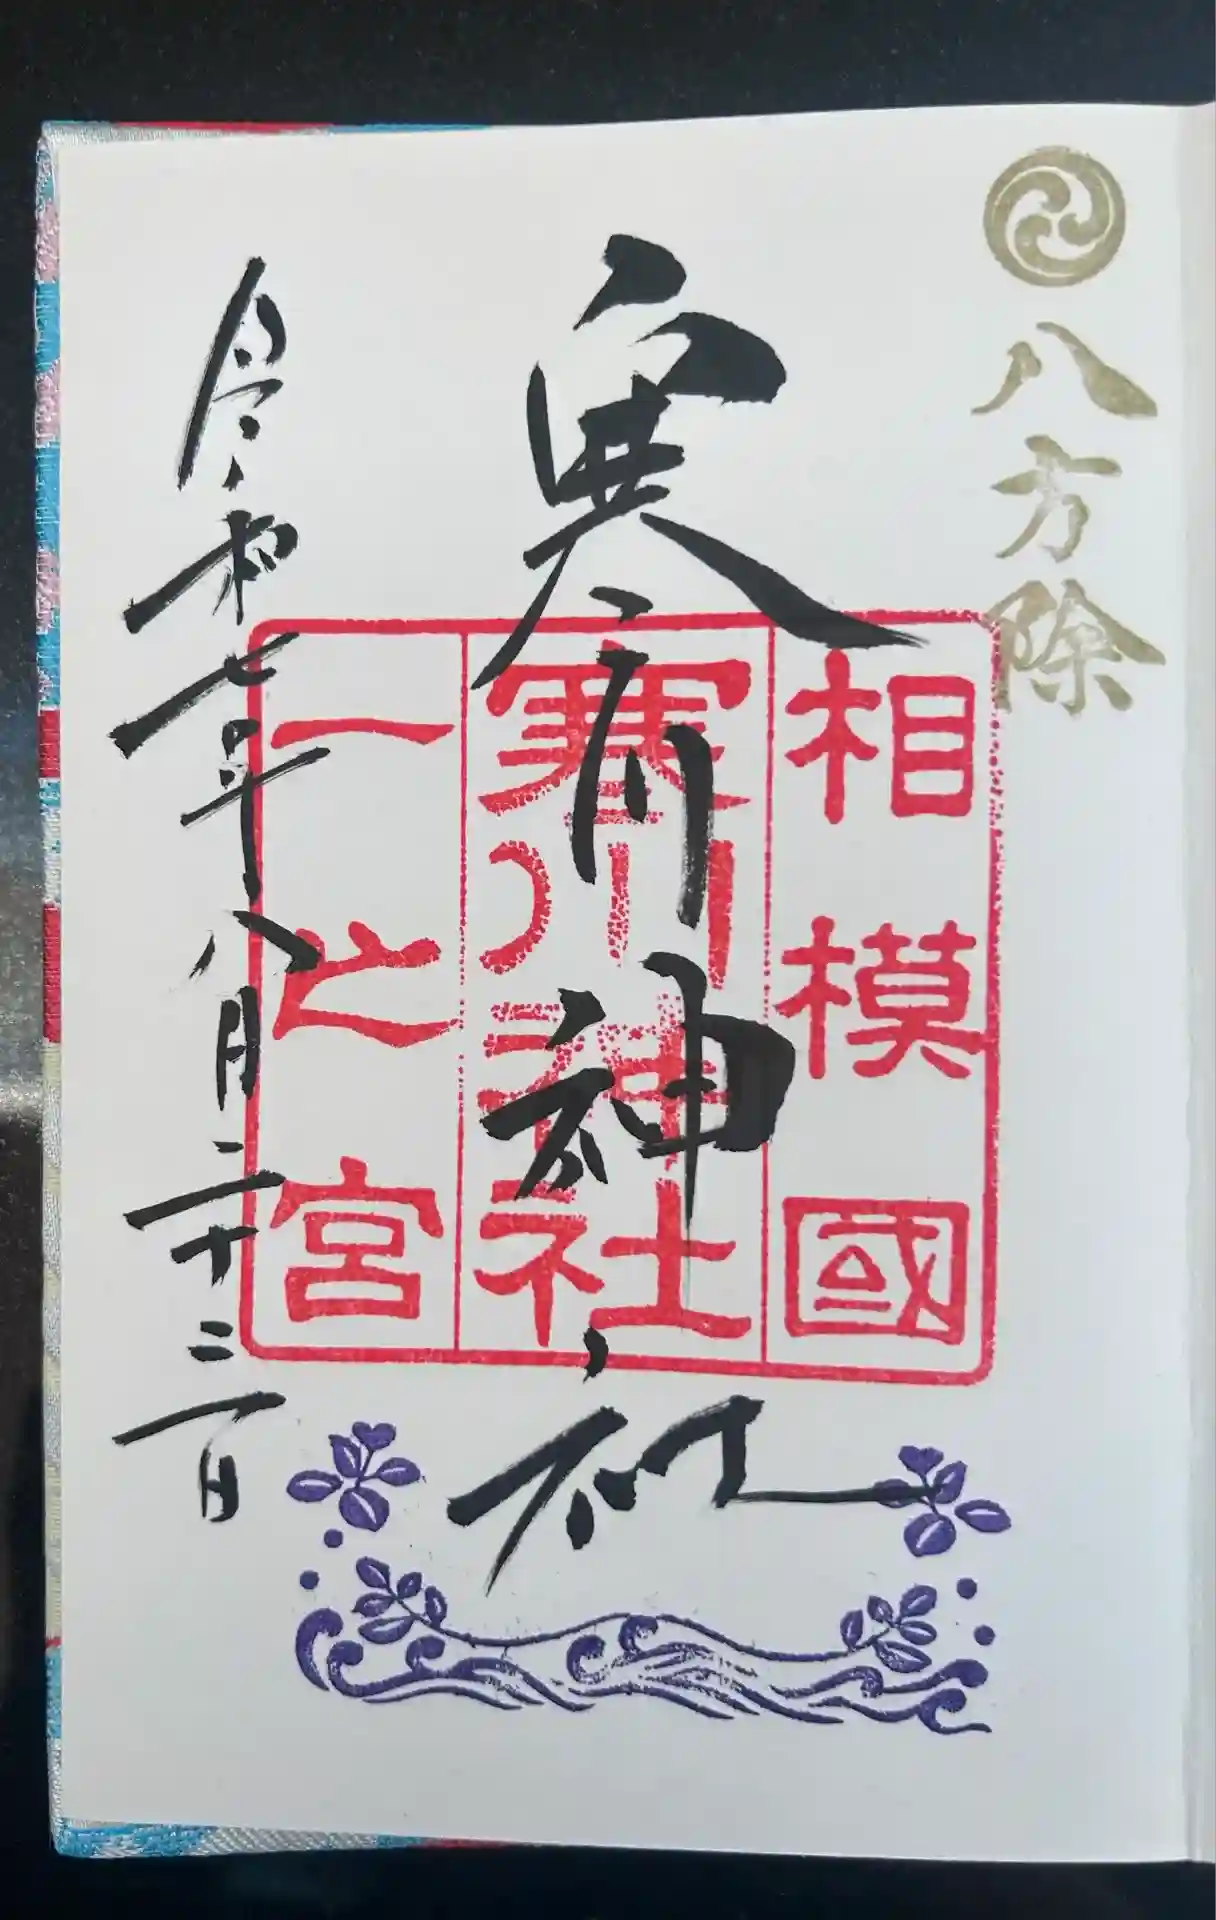 八方除
相模國
寒川神社
一之宮
寒川神社
令和七年八月二十二日